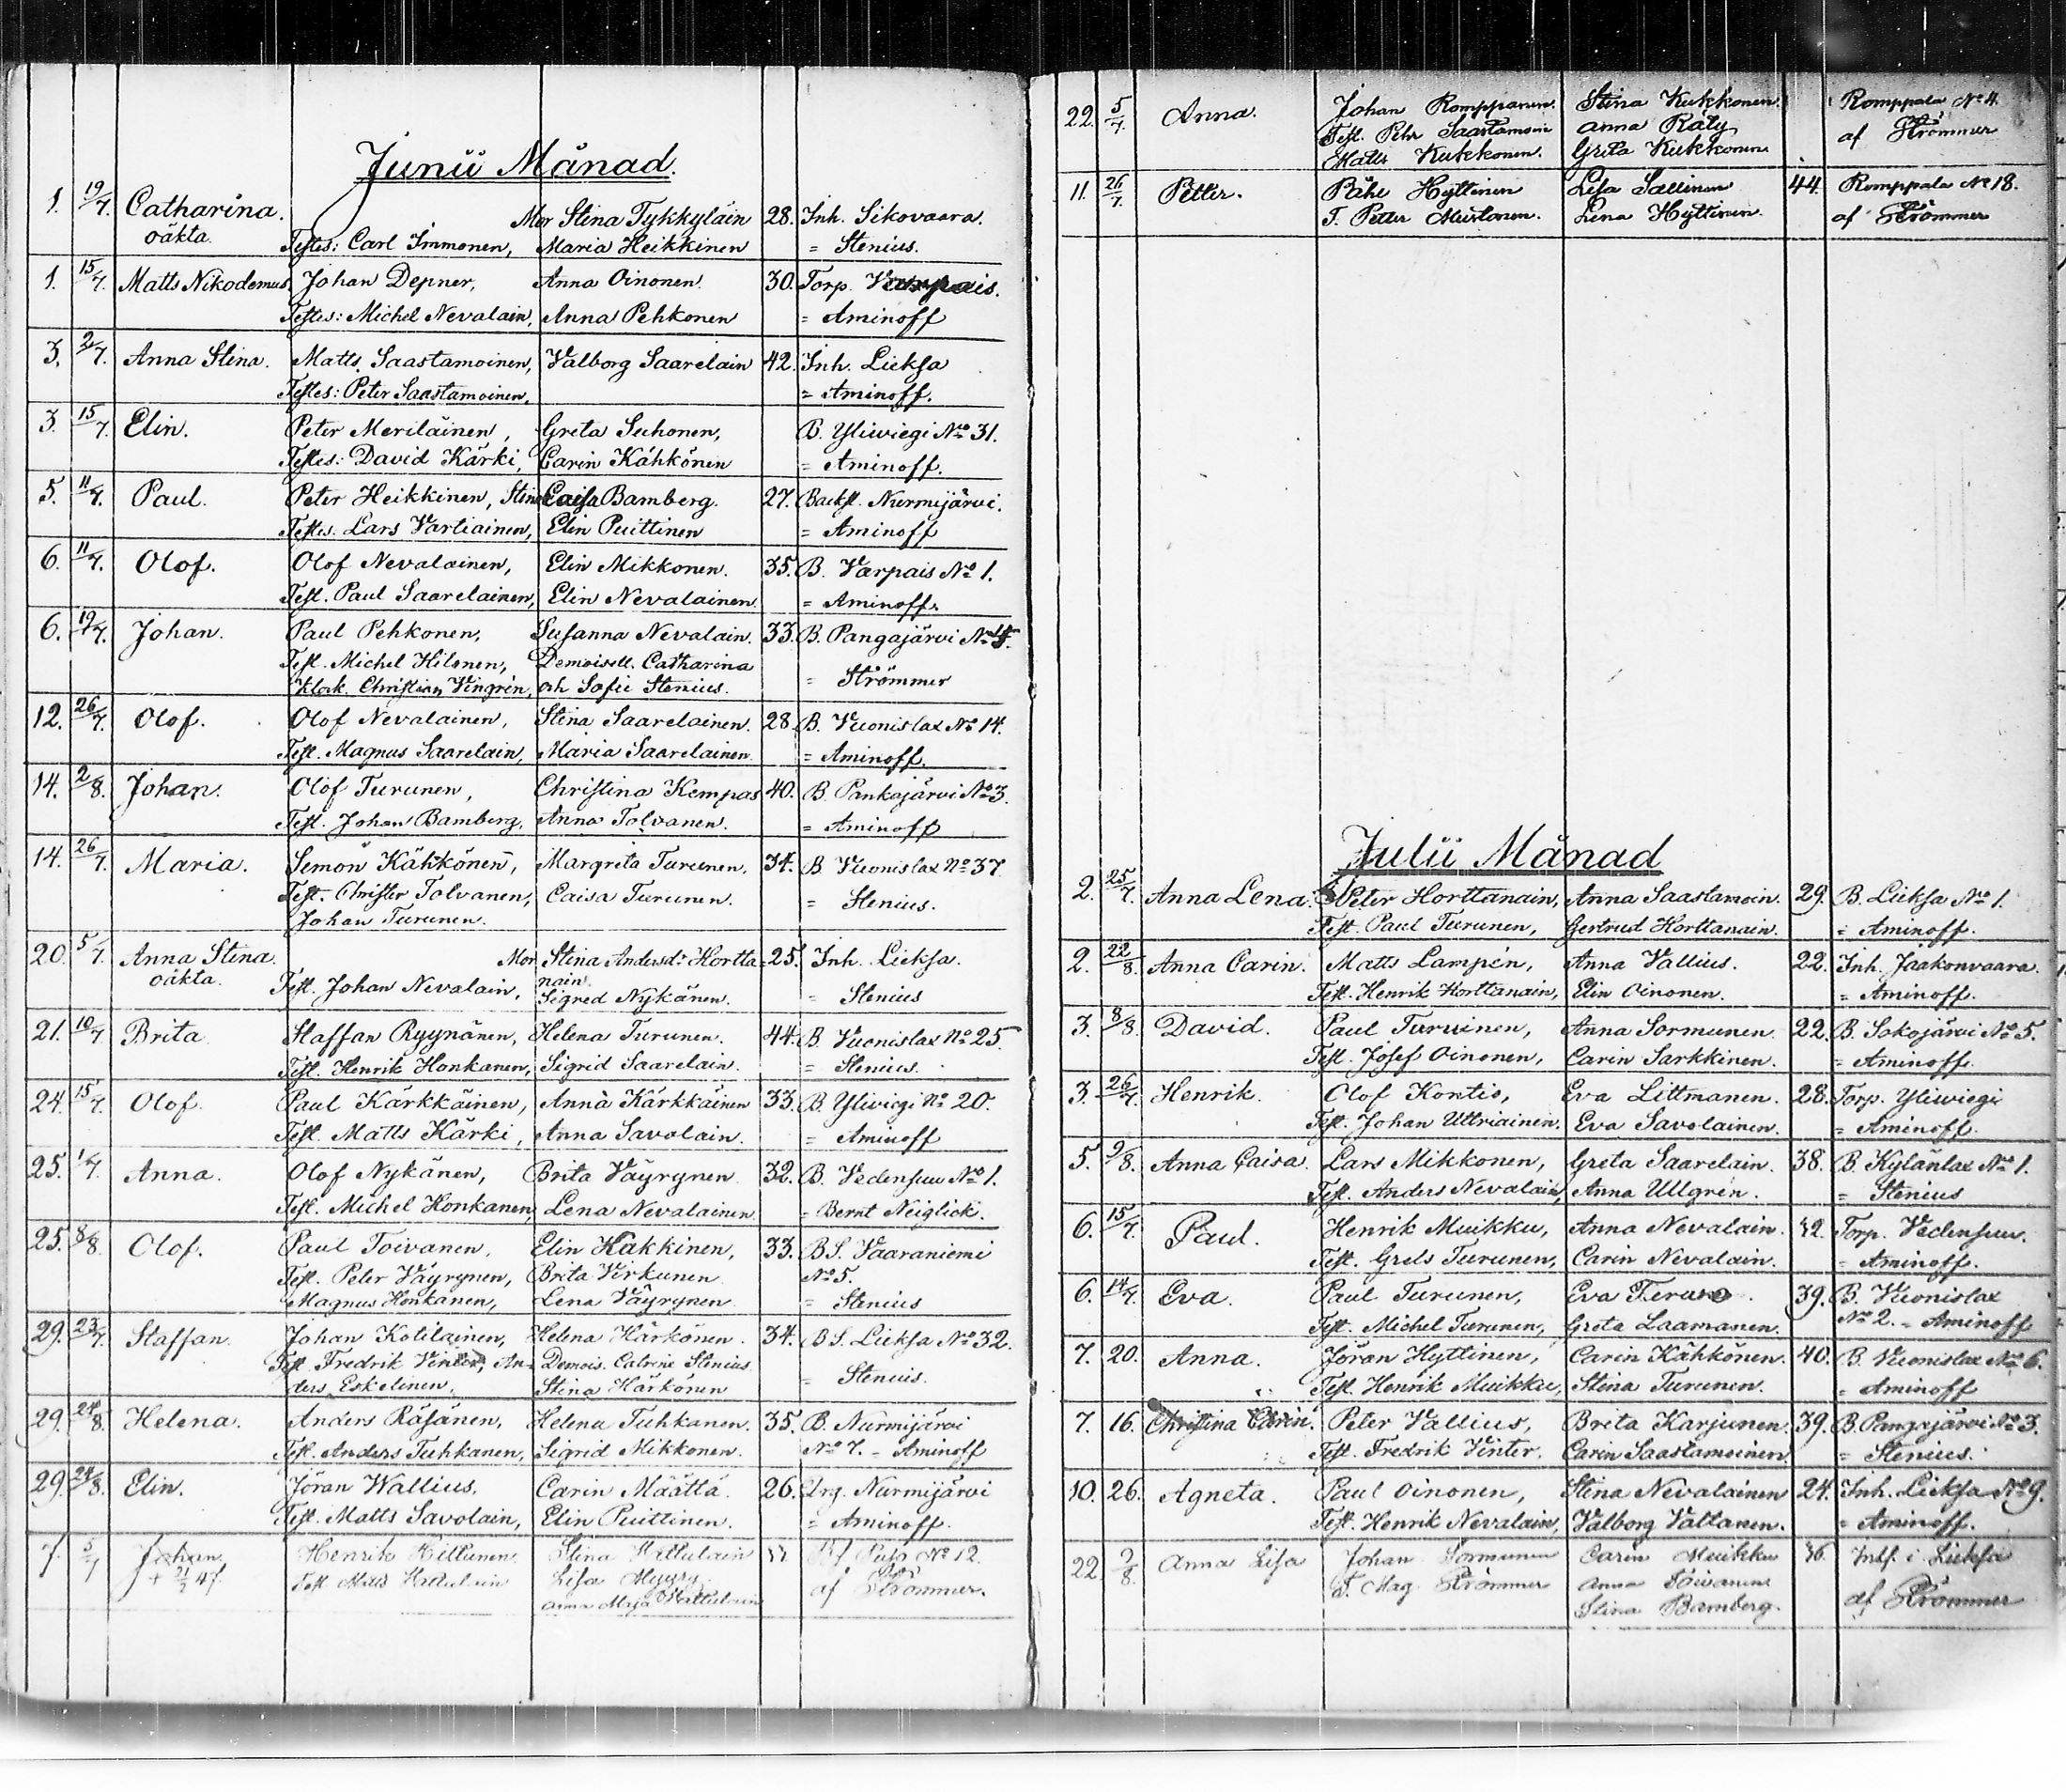 Junii Månad.
1. 19/7. Catharina. Mor Stina Tykkyläin 28. Inh. Sikovaara.
oäkta. Testes: Carl Immonen, Maria Heikkinen = Stenius.
1. 15/7. Matts Nikodemus. Johan Depner, Anna Oinonen. 30. Torp. Varpais.
Testes: Michel Nevalain, Anna Pehkonen = Aminoff
3. 2/7. Anna Stina. Matts Saastamoinen, Valborg Saarelain 42. Inh. Lieksa
Testes: Peter Saastamoinen. = Aminoff.
3. 15/7. Elin. Peter Meriläinen, Greta Suhonen, B. Yliwiegi No 31.
Testes: David Kärki, Carin Kähkönen = Aminoff.
5. 11/7. Paul. Peter Heikkinen, Stina Caisa Bamberg. 27. Backst. Nurmijärvi.
Testes. Lars Vartiainen, Elin Puittinen = Aminoff
6. 11/7. Olof. Olof Nevalainen, Elin Mikkonen. 35. B. Varpais No 1.
Test. Paul Saarelainen, Elin Nevalainen. = Aminoff.
6. 19/7. Johan. Paul Pehkonen, Susanna Nevalain. 33. B. Pangajärvi No
Test. Michel Hilonen, Demoisell. Catharina
Klock. Christian Vingrén, och Sofie Stenius. = Strömmer
12. 26/7. Olof. Olof Nevalainen, Stina Saarelainen. 28. B. Vuonislax No 14.
Test. Magnus Saarelain, Maria Saarelainen. = Aminoff.
14. 2/8. Johan. Olof Turunen, Christina Kempas 40. B. Pankajärvi No 3.
Test. Johan Bamberg, Anna Tolvanen. = Aminoff
14. 26/7. Maria. Semon Kähkönen, Margreta Turunen. 34. B. Vuonislax No 37
Test. Christer Tolvanen, Caisa Turunen. = Stenius.
Johan Turunen.
20. 5/7. Anna Stina. Mor Stina Andersdr Hortta= 25. Inh. Lieksa.
oäkta. nain.
Test. Johan Nevalain, Sigred Nykänen. = Stenius
21. 10/7 Brita Staffan Ryynänen, Helena Turunen. 44. B. Vuonislax No 25.
Test. Henrik Honkanen, Sigrid Saarelain. = Stenius.
24. 15/7. Olof. Paul Kärkkäinen, Anna Kärkkäinen 33. B. Yliwiegi No 20.
Test. Matts Kärki, Anna Savolain. = Aminoff
25. 1/7. Anna. Olof Nykänen, Brita Väyrynen 32. B. Vedensuu No 1.
Test. Michel Honkanen, Lena Nevalainen. = Bernt Neiglick.
25. 8/8. Olof. Paul Toivanen, Elin Kakkinen, 33. BS. Vaaraniemi
Test. Peter Väyrynen, Brita Virkunen No 5.
Magnus Honkanen, Lena Väyrynen = Stenius
29. 23/7. Staffan. Johan Kotilainen, Helena Härkönen. 34. BS. Lieksa No 32.
Test. Fredrik Vinter, An- Demois. Catrine Stenius
ders Eskelinen. Stina Härkönen = Stenius.
29. 24/8. Helena. Anders Räsänen, Helena Tuhkanen. 35. B. Nurmijärvi
Test. Anders Tuhkanen, Sigrid Mikkonen. No 7. = Aminoff
29. 24/8. Elin. Jöran Wallius, Carin Määttä. 26. Nurmijärvi
Test. Matts Savolain, Elin Puittinen. = Aminoff.
7. 5/7 Johan Henrik Hiltunen Stina Hattulain No 12.
+ 21/7 47. Test. Matts Hattulain Lisa af Strömmer.
Anna Maja Hattulain
22. 5/7. Anna. Johan Romppanen. Stina Kukkonen. Romppala No 4.
Test. Pehr Saastamoin Anna Räty af Strömmer
Matts Kukkonen. Greta Kukkonen
11. 26/7. Petter. Påhl Hyttinen Lisa Sallinen 44. Romppala No 18.
T. Petter Mustonen. Lena Hyttinen. af Strömmer
Julii Månad
2. 25/7. Anna Lena. Peter Horttanain, Anna Saastamoin. 29. B. Lieksa No 1.
Test. Paul Turunen, Gertrud Horttanain. = Aminoff.
2. 22/8. Anna Carin. Matts Lampén, Anna Vallius. 22. Inh. Jaakonvaara.
Test. Henrik Horttanain, Elin Oinonen. = Aminoff.
3. 8/8. David. Paul Turuinen, Anna Sormunen. 22. B. Sokojärvi No 5.
Test. Josef Oinonen, Carin Sarkkinen. = Aminoff.
3. 26/7. Henrik. Olof Kontio, Eva Littmanen. 28. Torp. Yliwiegi
Test. Johan Ultriainen. Eva Savolainen. = Aminoff.
5. 9/8. Anna Caisa. Lars Mikkonen, Greta Saarelain. 38. B. Kylänlax No 1.
Test. Anders Nevalain, Anna Ullgren. = Stenius
6. 15/7. Paul. Henrik Muikku, Anna Nevalain. 42. Torp. Vedensuu.
Test. Grels Turunen, Carin Nevalain. = Aminoff.
6. 14/7. Eva. Paul Turunen, Eva 39. B. Vuonislax
Test. Michel Turunen, Greta Laamanen. No 2. = Aminoff
7. 20. Anna. Jöran Hyttinen, Carin Kähkönen. 40. B. Vuonislax No 6.
Test. Henrik Muikku, Stina Turunen. = Aminoff
7. 16. Christina Carin. Peter Vallius, Brita Karjunen. 39. B. Pangajärvi No 3.
Test. Fredrik Vinter. Carin Saastamoinen = Stenius.
10. 26. Agneta. Paul Oinonen, Stina Nevalainen 24. Inh. Lieksa No 9.
Test. Henrik Nevalain, Valborg Valtanen. = Aminoff.
22 2/8. Anna Lisa Johan Sormunen Carin Muikku 36. i Lieksa
T. Mag. Strömmer Anna Toivanen af Strömmer
Stina Bamberg.